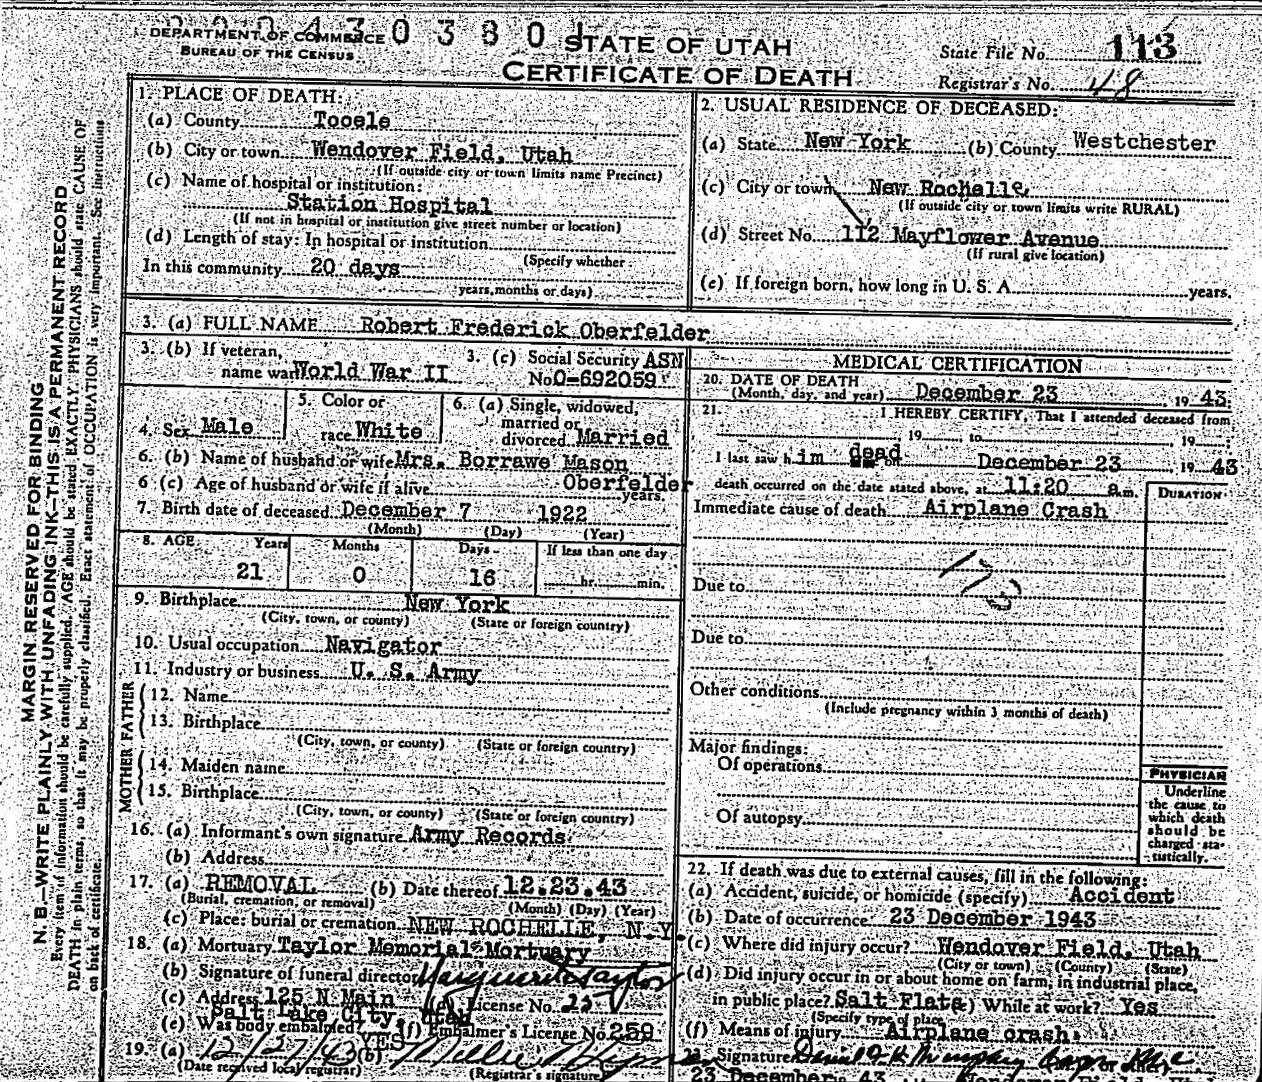 DEPARTMENT OF COMMERCE
BUREAU OF THE CENSUS
STATE OF UTAH
CERTIFICATE OF DEATH
State File No. 113
Registrar's No. 48
MARGIN RESERVED FOR BINDING
N. B.—WRITE PLAINLY WITH UNFADING INK—THIS IS A PERMANENT RECORD
Every item of information should be carefully supplied. AGE should be stated EXACTLY. PHYSICIANS should state CAUSE OF
DEATH in plain terms, so that it may be properly classified. Exact statement of OCCUPATION is very important. See instructions
on back of certificate.
1. PLACE OF DEATH:
(a) County Tooele
(b) City or town Wendover Field, Utah
(If outside city or town limits name Precinct)
(c) Name of hospital or institution:
Station Hospital
(If not in hospital or institution give street number or location)
(d) Length of stay: In hospital or institution
(Specify whether
In this community 20 days
years, months or days)
2. USUAL RESIDENCE OF DECEASED:
(a) State New York (b) County Westchester
(c) City or town New Rochelle
(If outside city or town limits write RURAL)
(d) Street No. 112 Mayflower Avenue
(If rural give location)
(e) If foreign born, how long in U. S. A. years.
3. (a) FULL NAME Robert Frederick Oberfelder
3. (b) If veteran,
name war World War II
3. (c) Social Security ASN
No. 0-692059
4. Sex Male
5. Color or
race White
6. (a) Single, widowed,
married or
divorced Married
6. (b) Name of husband or wife Mrs. Borrawe Mason
Oberfelder
6 (c) Age of husband or wife if alive years.
7. Birth date of deceased December 7 1922
(Month) (Day) (Year)
8. AGE Years Months Days If less than one day
21 0 16 hr. min.
9. Birthplace New York
(City, town, or county) (State or foreign country)
10. Usual occupation Navigator
11. Industry or business U. S. Army
FATHER
12. Name
13. Birthplace
(City, town, or county) (State or foreign country)
MOTHER
14. Maiden name
15. Birthplace
(City, town, or county) (State or foreign country)
16. (a) Informant's own signature Army Records
(b) Address
17. (a) REMOVAL (b) Date thereof 12.23.43
(Burial, cremation, or removal) (Month) (Day) (Year)
(c) Place: burial or cremation NEW ROCHELLE, N.Y.
18. (a) Mortuary Taylor Memorial Mortuary
(b) Signature of funeral director Marguerite Taylor
(c) Address 125 N Main (d) License No. 25
Salt Lake City, Utah
(e) Was body embalmed? YES (f) Embalmer's License No. 259
19. (a) 12/27/43 (b)
(Date received local registrar) (Registrar's signature)
MEDICAL CERTIFICATION
20. DATE OF DEATH
(Month, day, and year) December 23, 1943
21. I HEREBY CERTIFY, That I attended deceased from
, 19 , to , 19 ;
I last saw him dead on December 23 1943
death occurred on the date stated above, at 11:20 a.m.
DURATION
Immediate cause of death Airplane Crash
Due to
Due to
Other conditions
(Include pregnancy within 3 months of death)
Major findings:
Of operations
Of autopsy
PHYSICIAN
Underline
the cause to
which death
should be
charged sta-
tistically.
22. If death was due to external causes, fill in the following:
(a) Accident, suicide, or homicide (specify) Accident
(b) Date of occurrence 23 December 1943
(c) Where did injury occur? Wendover Field, Utah
(City or town) (County) (State)
(d) Did injury occur in or about home on farm, in industrial place,
in public place? Salt Flats (e) While at work? Yes
(Specify type of place)
(f) Means of injury Airplane crash.
23. Signature
23 December 43